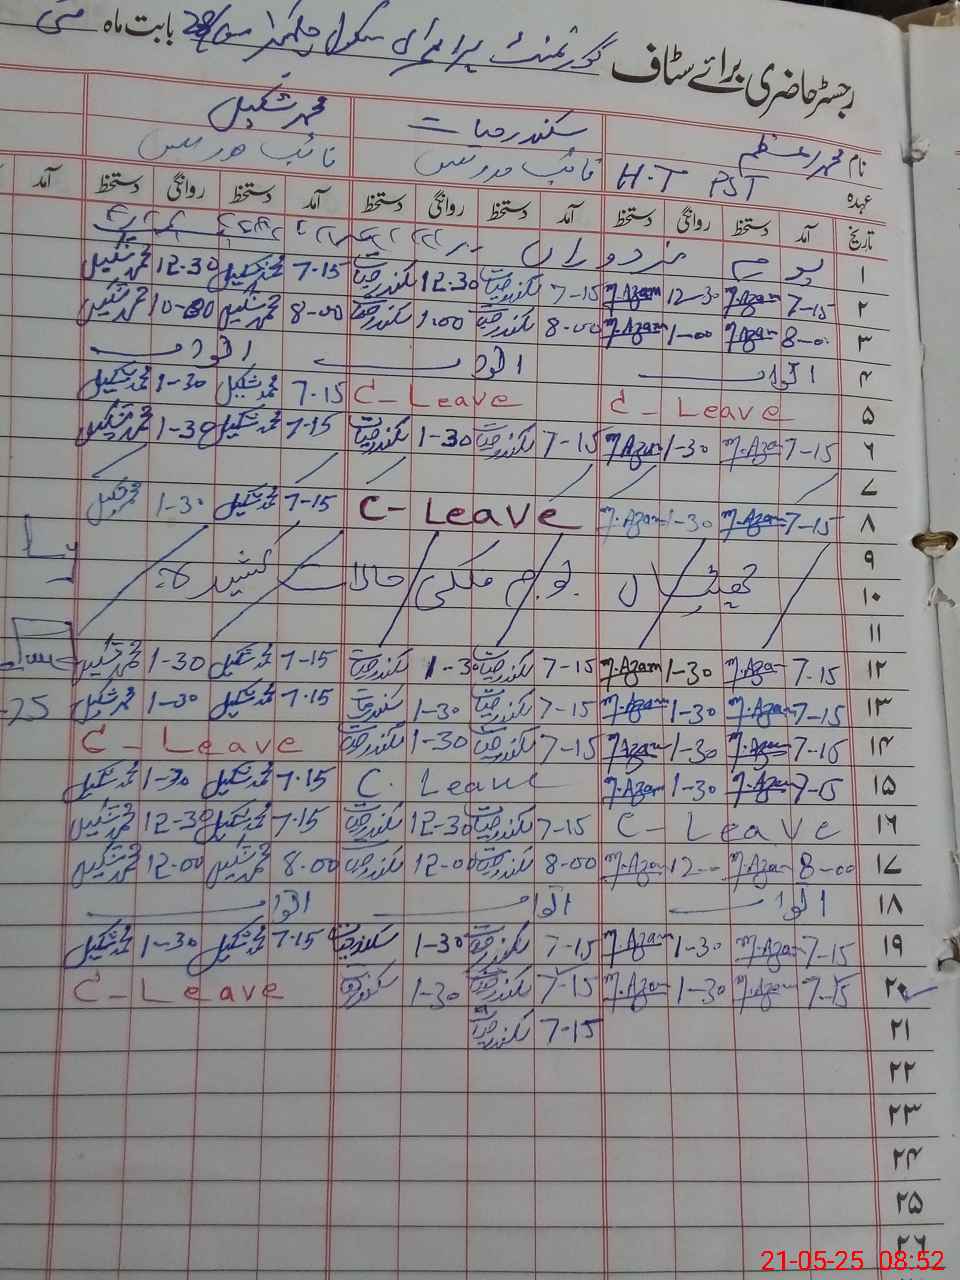 رجسٹر حاضری برائے سٹاف گورنمنٹ پرائمری سکول بابت ماہ مئی
نام محمد اعظم سکندر حیات محمد شکیل
عہدہ H.T PST نائب مدرس نائب مدرس
تاریخ آمد دستخط روانگی دستخط آمد دستخط روانگی دستخط آمد دستخط روانگی دستخط آمد
۱ یوم مزدوراں
۲ 7-15 M.Azam 12-30 M.Azam 7-15 سکندر حیات 12.30 سکندر حیات 7-15 محمد شکیل 12.30 محمد شکیل
۳ 8-00 M.Azam 1-00 M.Azam 8-00 سکندر حیات 1.00 سکندر حیات 8-00 محمد شکیل محمد شکیل
۴ اتوار اتوار اتوار
۵ C-Leave C-Leave 7.15 محمد شکیل 1-30 محمد شکیل
۶ 7-15 M.Azam 1-30 M.Azam 7-15 سکندر حیات 1-30 سکندر حیات 7-15 محمد شکیل 1-30 محمد شکیل
۷
۸ 7-15 M.Azam 1-30 M.Azam C-Leave 7-15 محمد شکیل 1-30 محمد شکیل
۹
۱۰ چھٹیاں بوجہ ملکی حالات کشیدہ
۱۱
۱۲ 7.15 M.Azam 1-30 M.Azam 7-15 سکندر حیات 1-30 سکندر حیات 7-15 محمد شکیل 1-30 محمد شکیل
۱۳ 7-15 M.Azam 1-30 M.Azam 7-15 سکندر حیات 1-30 سکندر حیات 7.15 محمد شکیل 1-30 محمد شکیل
-25
۱۴ 7-15 M.Azam 1-30 M.Azam 7-15 سکندر حیات 1-30 سکندر حیات C-Leave
۱۵ 7-15 M.Azam 1-30 M.Azam C. Leave 7.15 محمد شکیل 1-30 محمد شکیل
۱۶ C-Leave 7-15 سکندر حیات 12-30 سکندر حیات 7.15 محمد شکیل 12-30 محمد شکیل
۱۷ 8-00 M.Azam 12-- M.Azam 8-00 سکندر حیات 12-00 سکندر حیات 8.00 محمد شکیل 12.00 محمد شکیل
۱۸ اتوار اتوار اتوار
۱۹ 7-15 M.Azam 1-30 M.Azam 7-15 سکندر حیات 1-30 سکندر حیات 7.15 محمد شکیل 1-30 محمد شکیل
۲۰ 7-15 M.Azam 1-30 M.Azam 7-15 سکندر حیات 1-30 سکندر حیات C-Leave
۲۱ 7-15 سکندر حیات
۲۲
۲۳
۲۴
۲۵
۲۶
21-05-25 08:52